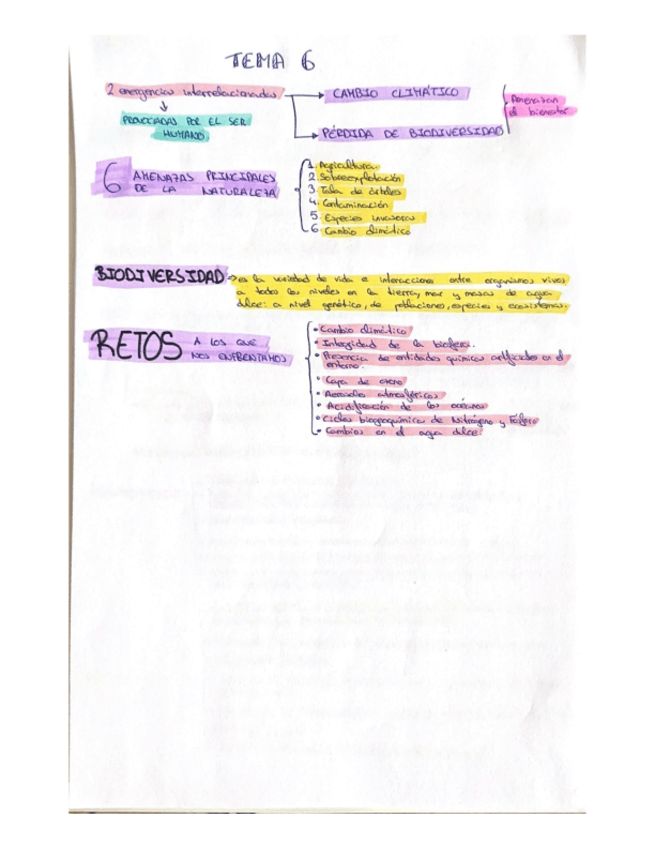 TEMA 6
2 emergencias interrelacionadas
CAMBIO CLIMÁTICO
Amenazan
el bienestar
PROVOCADAS POR EL SER
HUMANO
PÉRDIDA DE BIODIVERSIDAD
6 AMENAZAS PRINCIPALES
DE LA NATURALEZA
1. Agricultura.
2. Sobreexplotación
3. Tala de árboles
4. Contaminación
5. Especies invasoras
6. Cambio climático
BIODIVERSIDAD → es la variedad de vida e interacciones entre organismos vivos
a todos los niveles en la tierra, mar y masas de agua
dulce: a nivel genético, de poblaciones, especies y ecosistemas.
RETOS A LOS QUE
NOS ENFRENTAMOS
• Cambio climático
• Integridad de la biosfera.
• Presencia de entidades químicas artificiales en el
entorno.
• Capa de ozono
• Aerosoles atmosféricos
• Acidificación de los océanos
• Ciclos biogeoquímicos de Nitrógeno y Fósforo
• Cambios en el agua dulce.